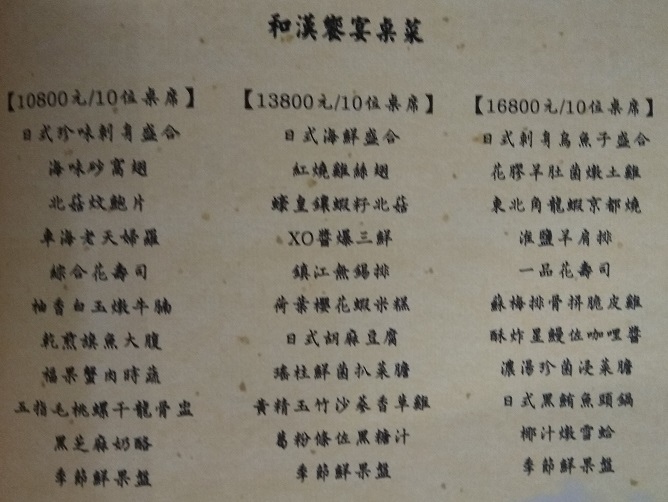 和漢饗宴桌菜
【10800元/10位桌席】
日式珍味刺身盛合
海味砂窩翅
北菇炆鮑片
車海老天婦羅
綜合花壽司
柚香白玉燉牛腩
乾煎旗魚大腹
福果蟹肉時蔬
五指毛桃螺干龍骨盅
黑芝麻奶酪
季節鮮果盤
【13800元/10位桌席】
日式海鮮盛合
紅燒雞絲翅
蠔皇鑲蝦籽北菇
XO醬爆三鮮
鎮江無錫排
荷葉櫻花蝦米糕
日式胡麻豆腐
瑤柱鮮菌扒菜膽
黃精玉竹沙蔘香草雞
葛粉條佐黑糖汁
季節鮮果盤
【16800元/10位桌席】
日式刺身烏魚子盛合
花膠羊肚菌燉土雞
東北角龍蝦京都燒
淮鹽羊肩排
一品花壽司
蘇梅排骨拼脆皮雞
酥炸星鰻佐咖哩醬
濃湯珍菌浸菜膽
日式黑鮪魚頭鍋
椰汁燉雪蛤
季節鮮果盤